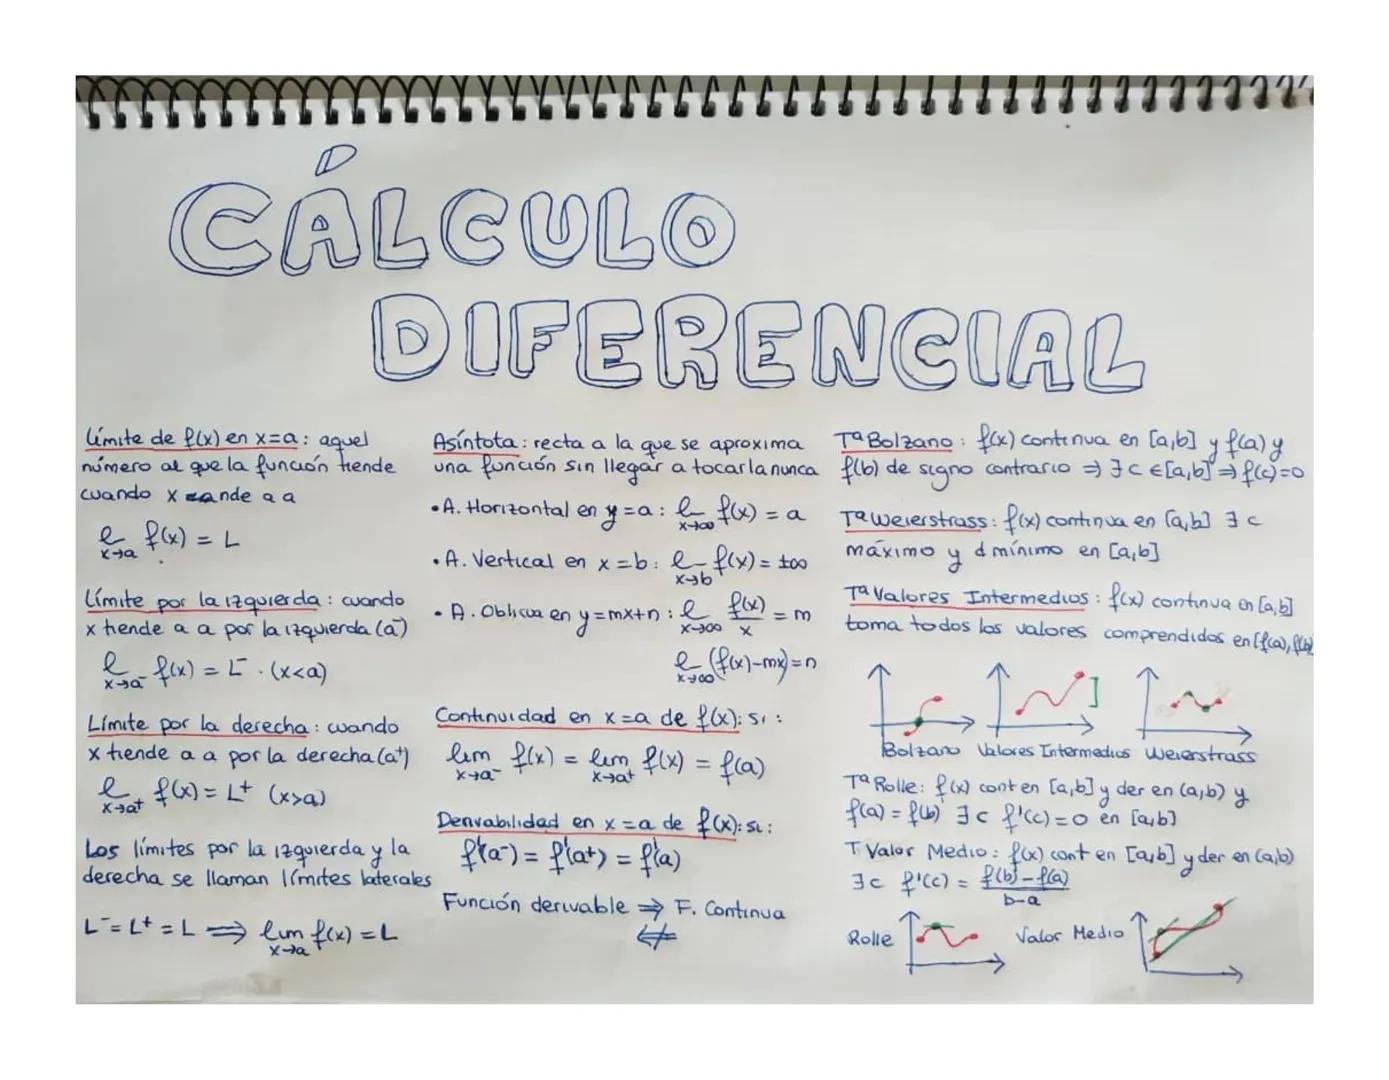 CÁLCULO
DIFERENCIAL
Límite de f(x) en x=a: aquel
número al que la función tiende
cuando x tiende a a
lim f(x) = L
x→a
Límite por la izquierda: cuando
x tiende a a por la izquierda (a⁻)
lim f(x) = L⁻ · (x<a)
x→a⁻
Límite por la derecha: cuando
x tiende a a por la derecha (a⁺)
lim f(x) = L⁺ (x>a)
x→a⁺
Los límites por la izquierda y la
derecha se llaman límites laterales
L⁻ = L⁺ = L ⟹ lim f(x) = L
x→a
Asíntota: recta a la que se aproxima
una función sin llegar a tocarla nunca
• A. Horizontal en y=a: lim f(x) = a
x→∞
• A. Vertical en x=b: lim f(x) = ±∞
x→b
• A. Oblicua en y=mx+n: lim f(x)/x = m
x→∞
lim (f(x)-mx) = n
x→∞
Continuidad en x=a de f(x): si:
lim f(x) = lim f(x) = f(a)
x→a⁻ x→a⁺
Derivabilidad en x=a de f(x): si:
f'(a⁻) = f'(a⁺) = f'(a)
Función derivable ⟹ F. Continua
⇍
Tª Bolzano: f(x) continua en [a,b] y f(a) y
f(b) de signo contrario ⇒ ∃ c ∈ [a,b] ⇒ f(c)=0
Tª Weierstrass: f(x) continua en [a,b] ∃ c
máximo y d mínimo en [a,b]
Tª Valores Intermedios: f(x) continua en [a,b]
toma todos los valores comprendidos en [f(a), f(b)
Bolzano Valores Intermedios Weierstrass
Tª Rolle: f(x) cont en [a,b] y der en (a,b) y
f(a) = f(b) ∃ c f'(c)=0 en [a,b]
T Valor Medio: f(x) cont en [a,b] y der en (a,b)
∃ c f'(c) = f(b)-f(a)
b-a
Rolle Valor Medio